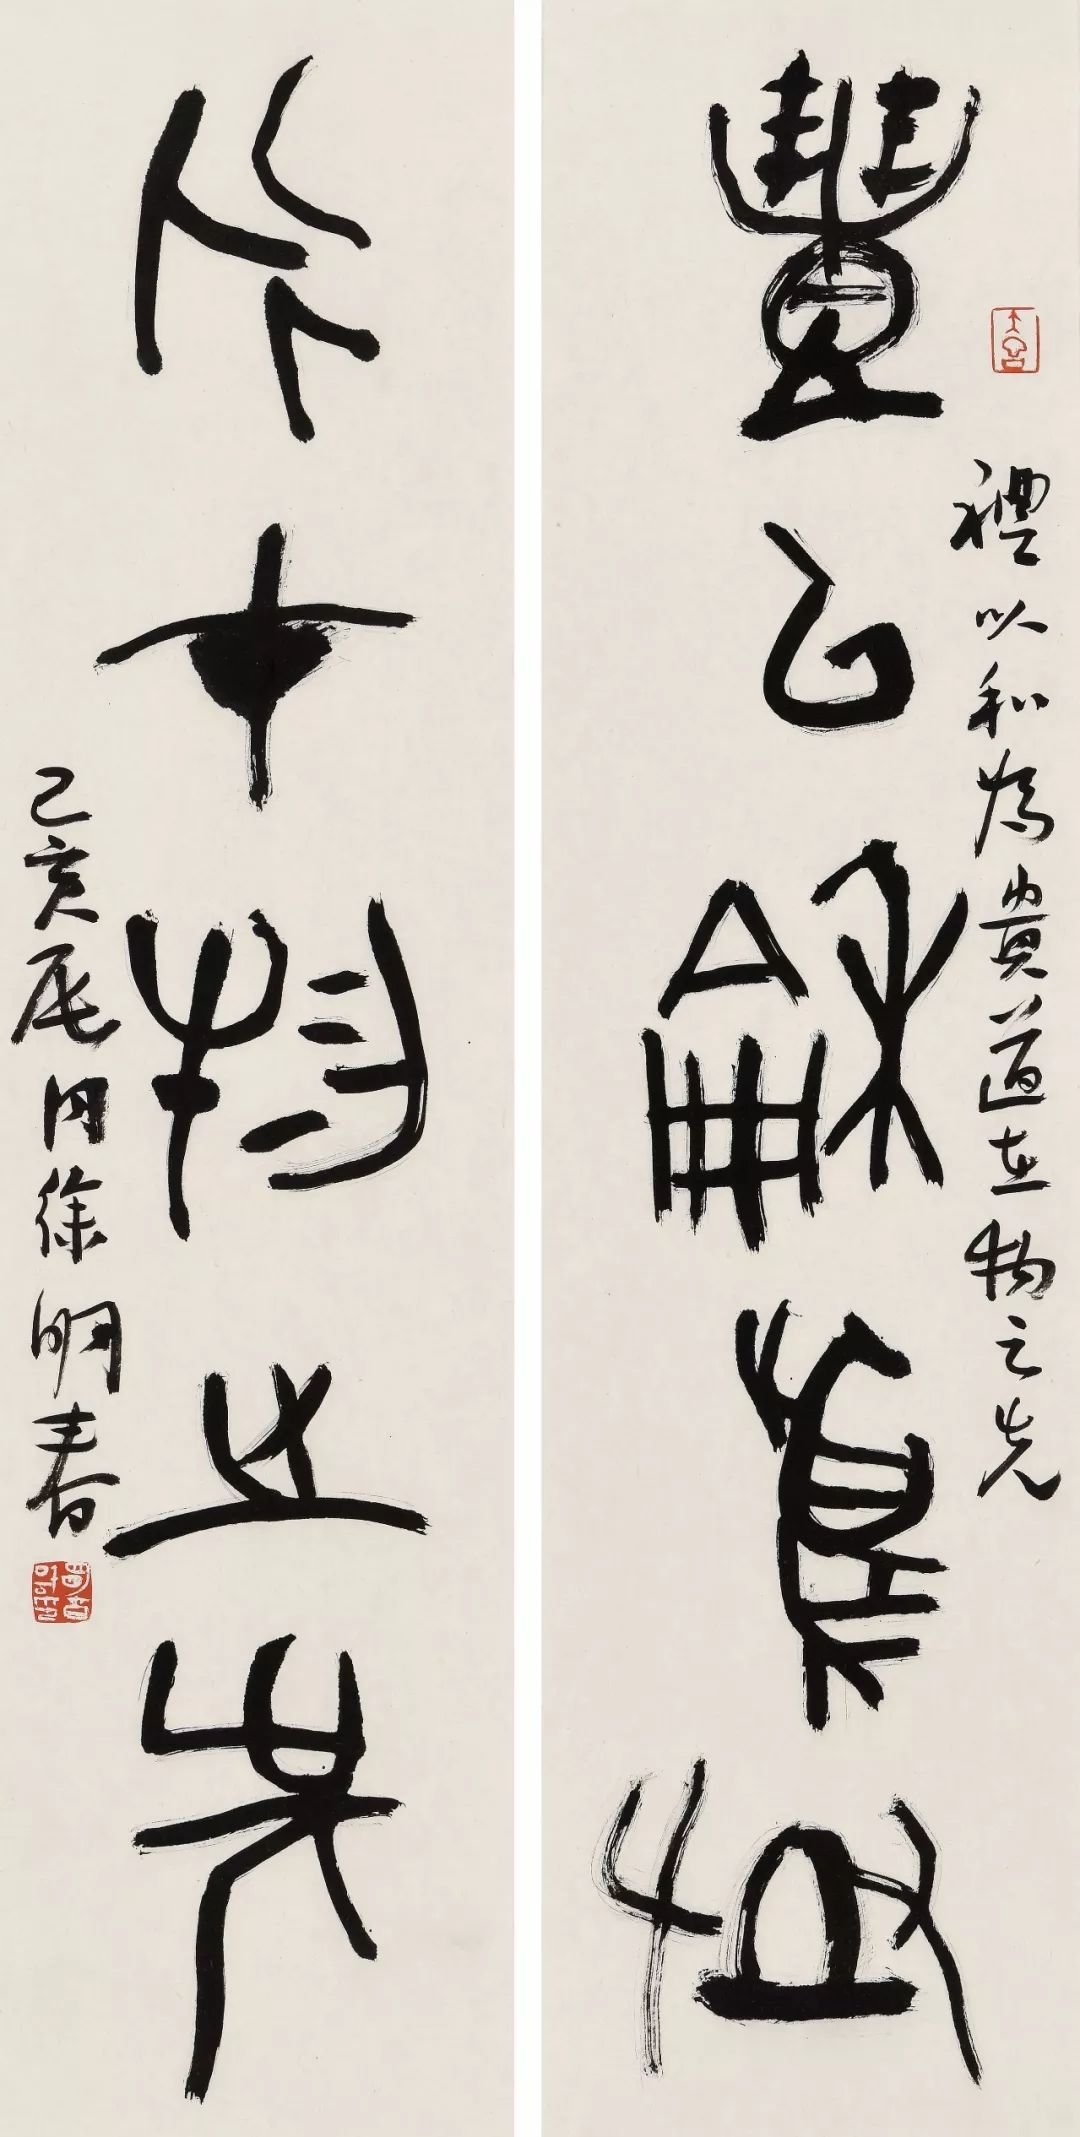 禮以和為貴道在物之先
豊以龢為貴
道在物之先
己亥尾月徐明春